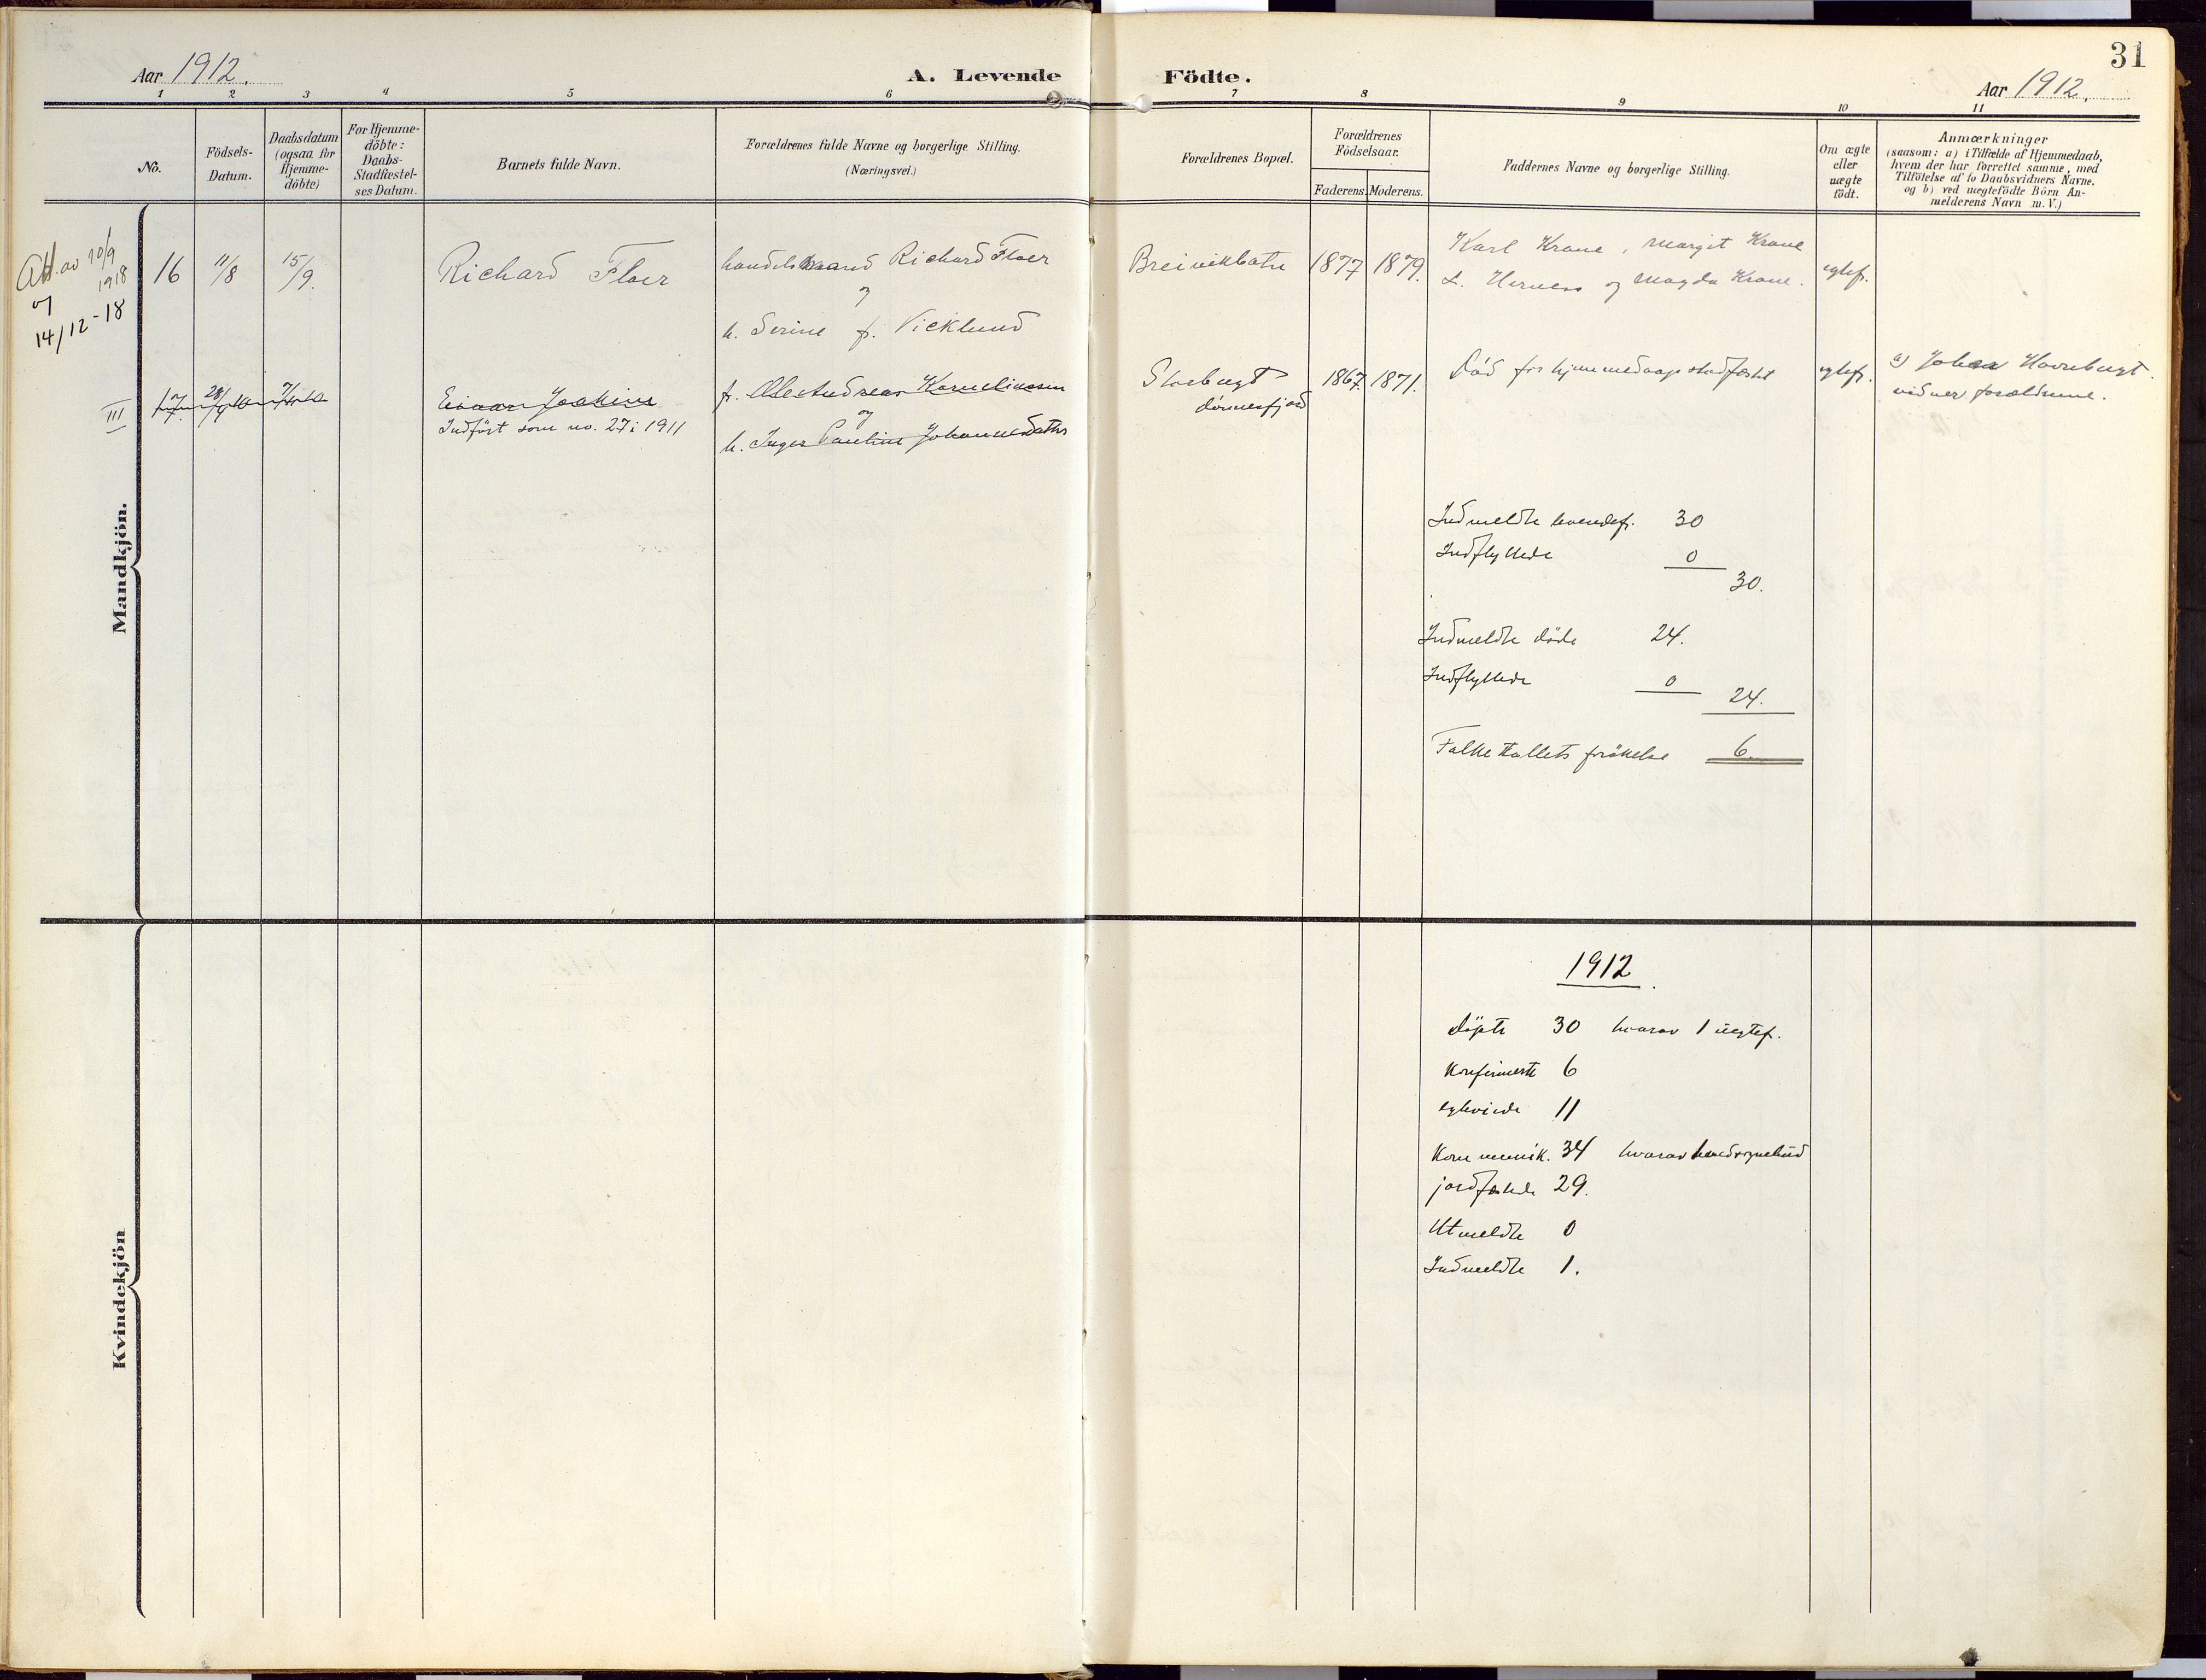 31
Aar 1912.
A. Levende Födte.
Aar 1912.
1 2 3 4 5 6 7 8 9 10 11
No.
Födsels-
Datum.
Daabsdatum
(ogsaa for
Hjemme-
döbte)
For Hjemme-
döbte:
Daabs-
Stadfæstel-
ses Datum.
Barnets fulde Navn.
Forældrenes fulde Navne og borgerlige Stilling.
(Næringsvei.)
Forældrenes Bopæl.
Forældrenes
Födselsaar.
Faderens. Moderens.
Faddernes Navne og borgerlige Stilling.
Om ægte
eller
uægte
födt.
Anmærkninger
(saasom: a) i Tilfælde af Hjemmedaab,
hvem der har forrettet samme, med
Tilföielse af to Daabsvidners Navne,
og b) ved uægtefödte Börn An-
melderens Navn m. V.)
Att. av 10/9
1918
og
14/12-18
16 11/8 15/9. Richard Floer
handelsmand Richard Floer
og
h. Serine f. Vicklund
Breivikbotn 1877 1879.
Karl Krane, Margit Krane
L. Herness og Magda Krane.
egtef.
III
17. 28/9
Einar Joakim
Indført som no. 27 i 1911
f. Ole Andreas Kornelinssen
og
h. Inger Pauline Johannesdatter
Storbugt
Dönnesfjord
1867. 1871.
Död før hjemmedaap stadfæstet
egtef.
a) Johan Havnebugt.
vidner forældrene.
Mandkjön.
Indmeldte levendef. 30
Indflyttede 0
30.
Indmeldte döde 24.
Indflyttede 0
24.
Folketallets forökelse 6.
Kvindekjön
1912
döpte 30 hvorav 1 uegtef.
Konfirmerte 6
egteviede 11
Kommunik. 34 hvorav
jordfæstede 29.
Utmeldte 0
Indmeldte 1.